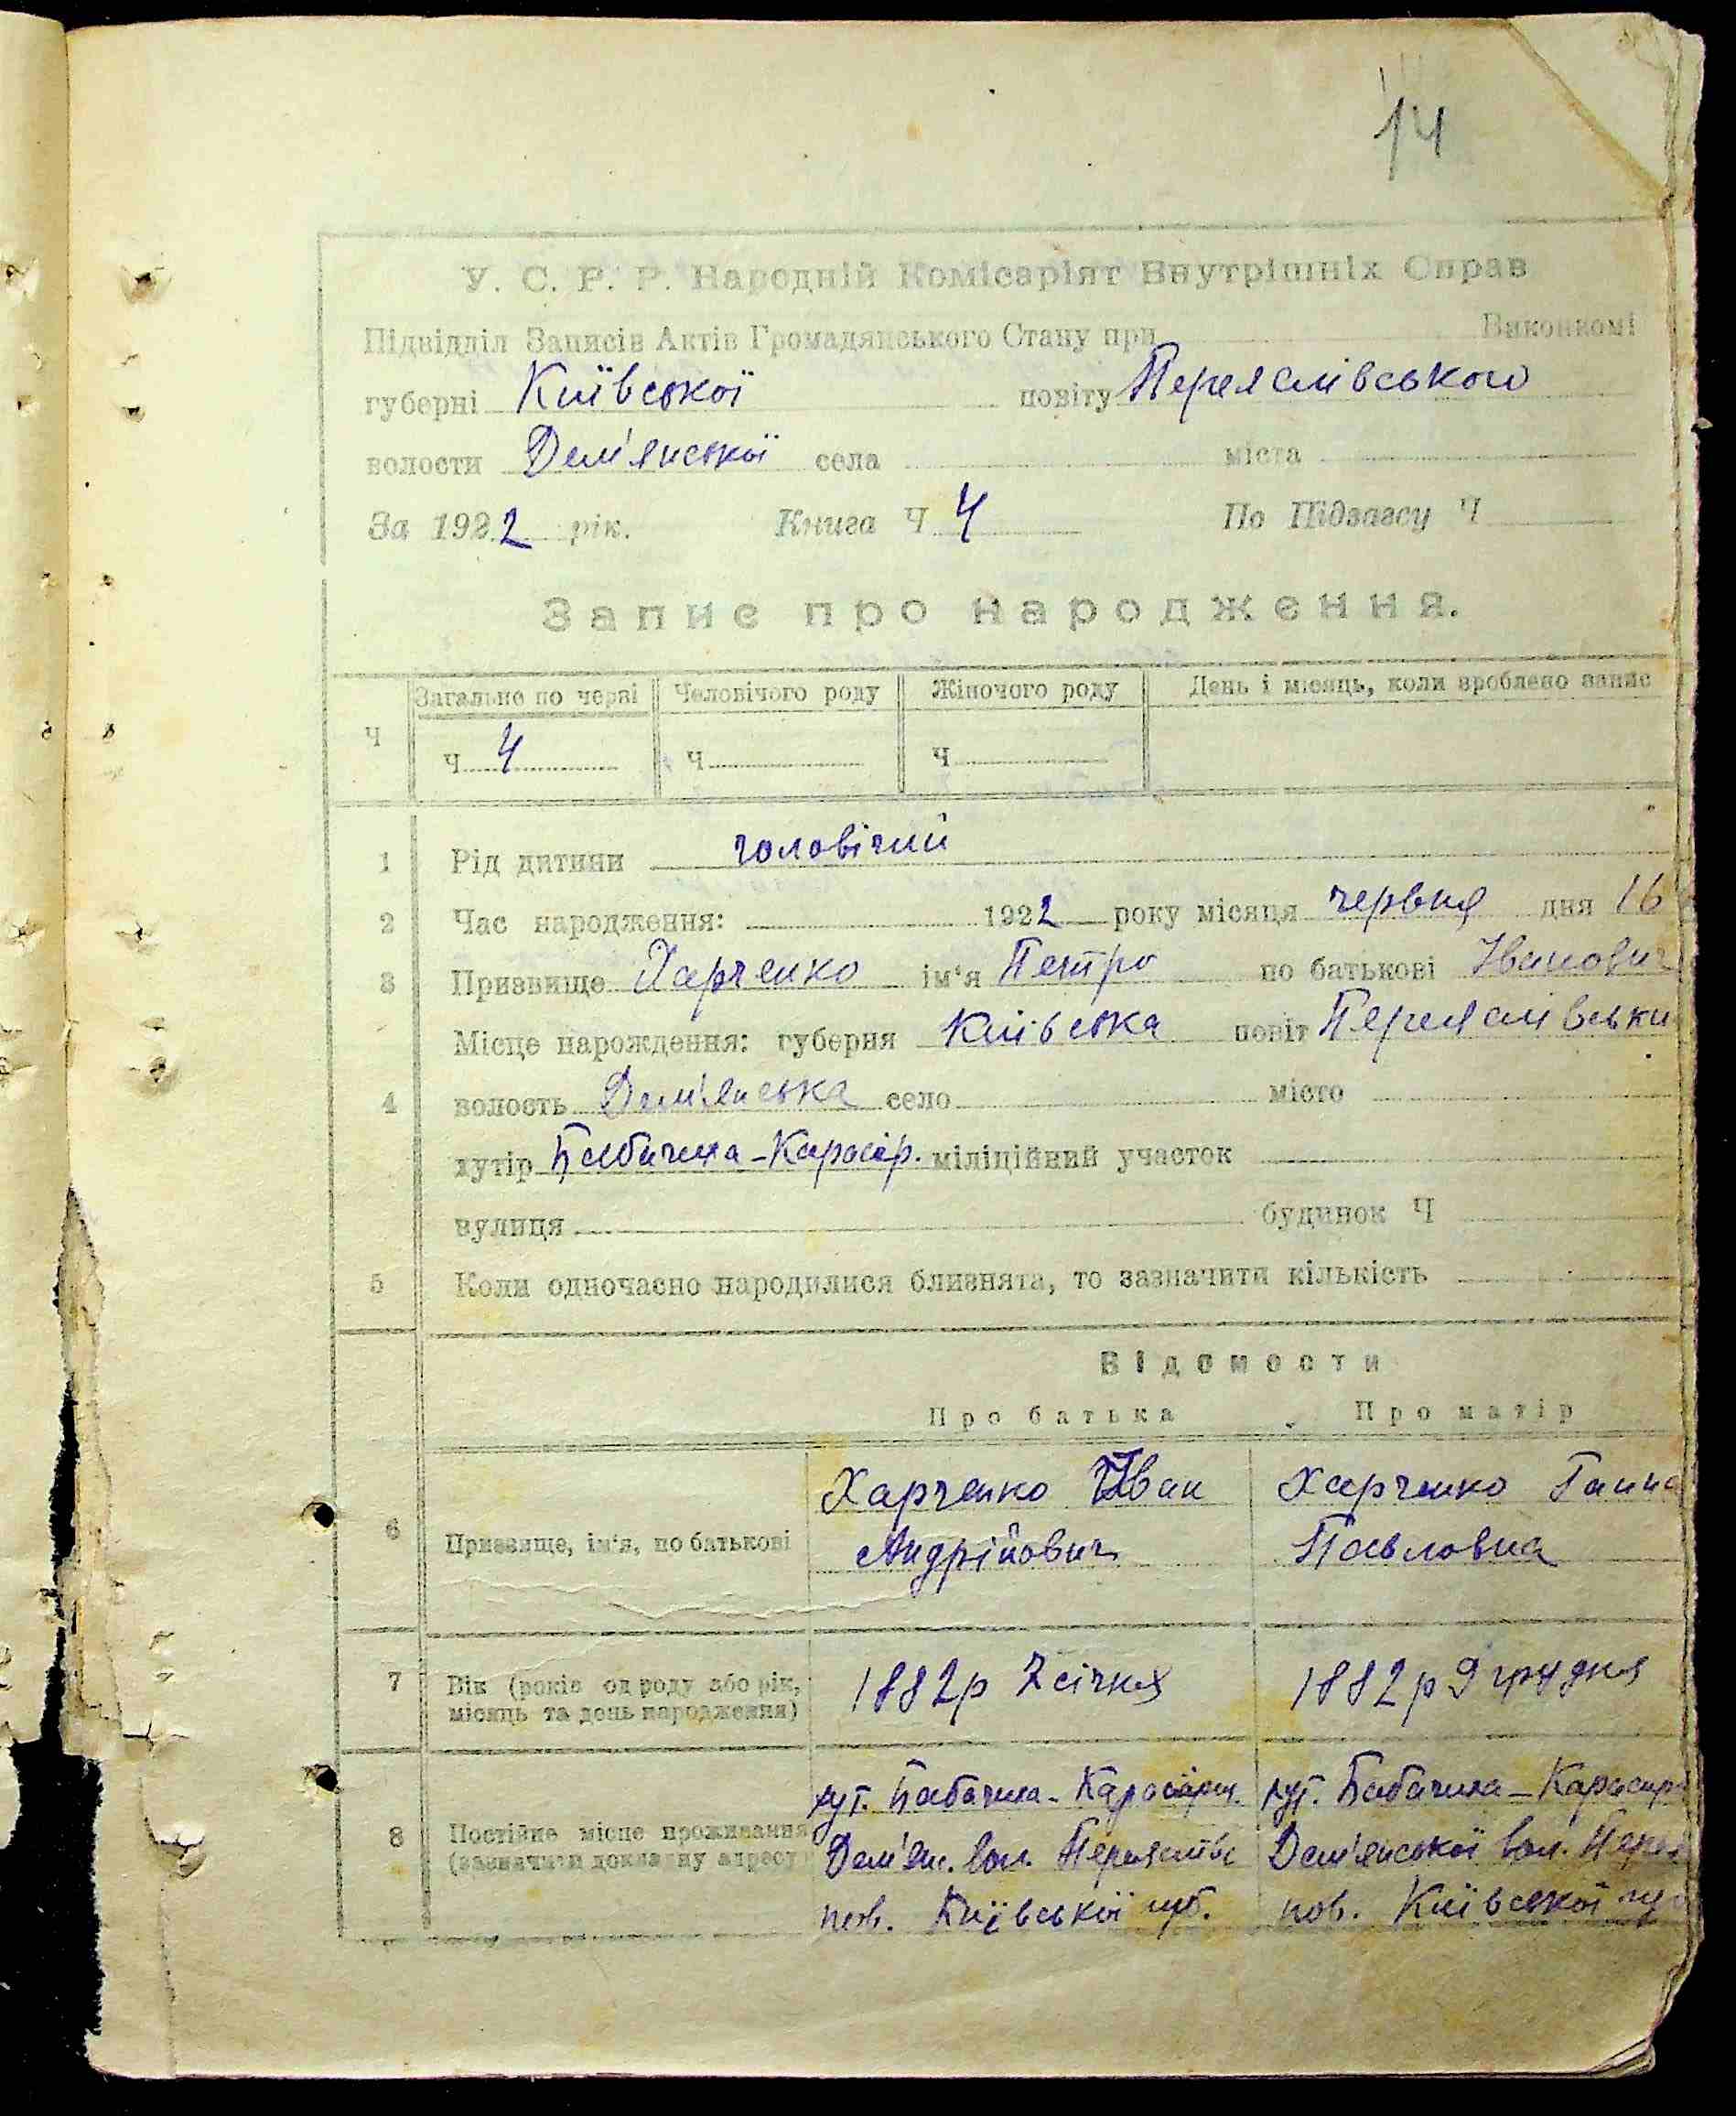 14
У. С. Р. Р. Народній Комісаріят Внутрішніх Справ
Підвідділ Записів Актів Громадянського Стану при Виконкомі
губерні Київської повіту Переяслівського
волости Дем'янської села міста
За 1922 рік. Книга Ч 4 По Підзагсу Ч
Запис про народження.
Загальне по черзі Человічого роду Жіночого роду День і місяць, коли зроблено запис
Ч Ч 4 Ч Ч
1 Рід дитини чоловічий
2 Час народження: 1922 року місяця червня дня 16
3 Призвище Харченко ім'я Петро по батькові Іванович
Місце нарождення: губерня Київська повіт Переяслівськи
4 волость Дем'янська село місто
хутір Бабачиха-Карасір. міліційний участок
вулиця будинок Ч
5 Коли одночасно народилися близнята, то зазначити кількість
Відомости
Про батька Про матір
Харченко Іван Харченко Ганна
6 Призвище, ім'я, по батькові Андрійович Павловна
7 Вік (років од роду або рік, 1882р 7 січня 1882р 9 грудня
місяць та день народження)
хут. Бабачиха-Карасірх. хут. Бабачиха-Карасир
8 Постійне місце проживання Дем'ян. вол. Переяслівс Дем'янської вол. Перея
(зазначити докладну адресу) пов. Київської губ. пов. Київської гу